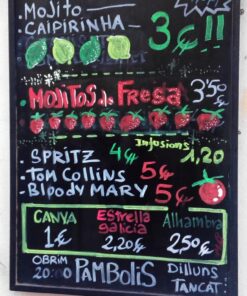 . MOJITO
. CAIPIRINHA — 3€!!
. MOJITOS de Fresa 3'50€
Infusions 1,20
. SPRITZ 4€
. Tom Collins 5€
. Bloody MARY 5€
CANYA 1€
Estrella galicia 2,20€
Alhambra 2,50€
OBRIM 20:00 PAMBOLIS Dilluns TANCAT!